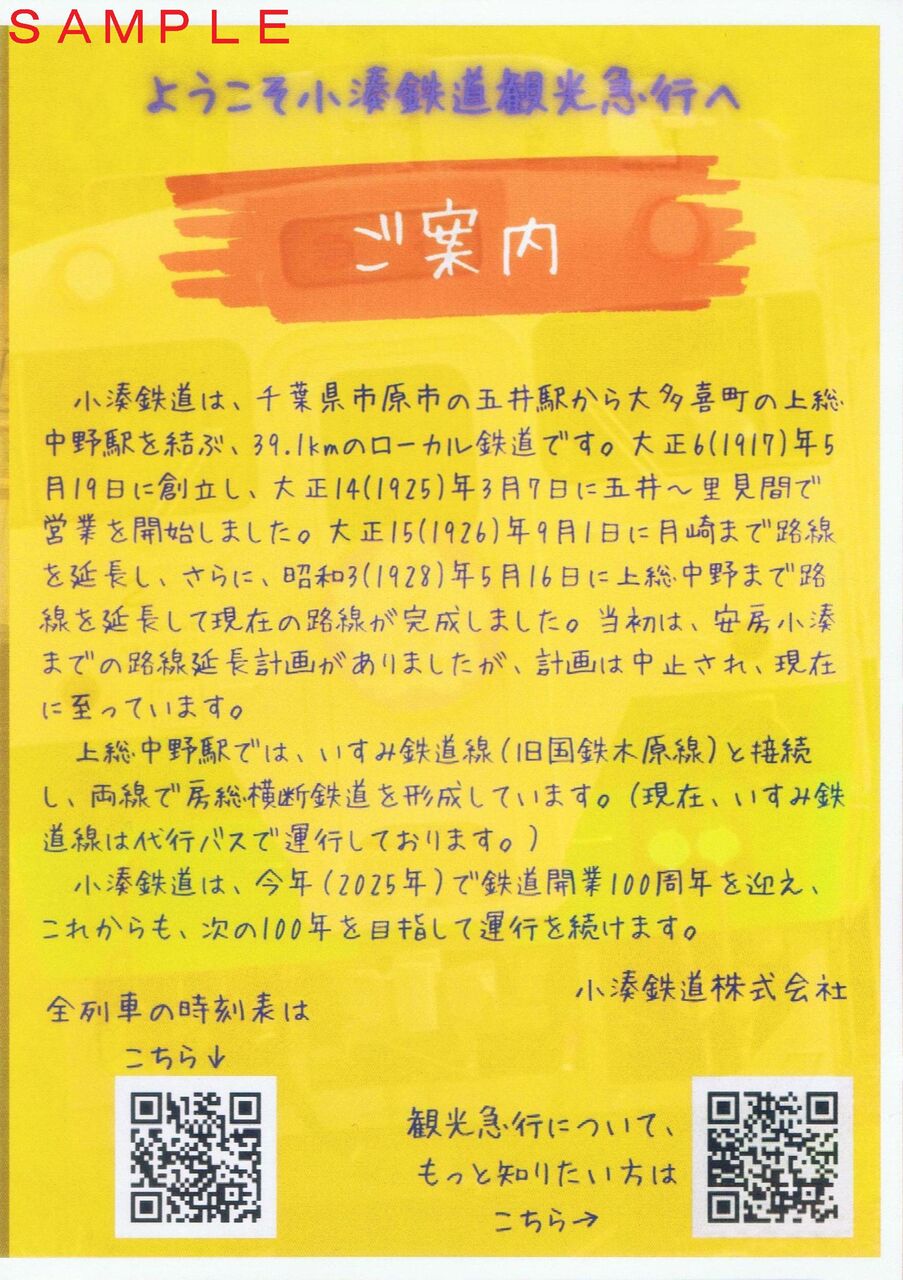 SAMPLE
ようこそ小湊鉄道観光急行へ
ご案内
小湊鉄道は、千葉県市原市の五井駅から大多喜町の上総
中野駅を結ぶ、39.1kmのローカル鉄道です。大正6(1917)年5
月19日に創立し、大正14(1925)年3月7日に五井～里見間で
営業を開始しました。大正15(1926)年9月1日に月崎まで路線
を延長し、さらに、昭和3(1928)年5月16日に上総中野まで路
線を延長して現在の路線が完成しました。当初は、安房小湊
までの路線延長計画がありましたが、計画は中止され、現在
に至っています。
上総中野駅では、いすみ鉄道線(旧国鉄木原線)と接続
し、両線で房総横断鉄道を形成しています。(現在、いすみ鉄
道線は代行バスで運行しております。)
小湊鉄道は、今年(2025年)で鉄道開業100周年を迎え、
これからも、次の100年を目指して運行を続けます。
小湊鉄道株式会社
全列車の時刻表は
こちら↓
観光急行について、
もっと知りたい方は
こちら→